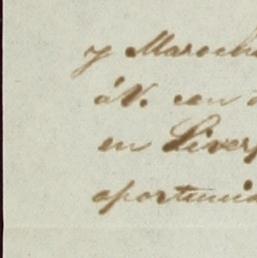 y Maroch
á V. con
en Liverp
oportunid